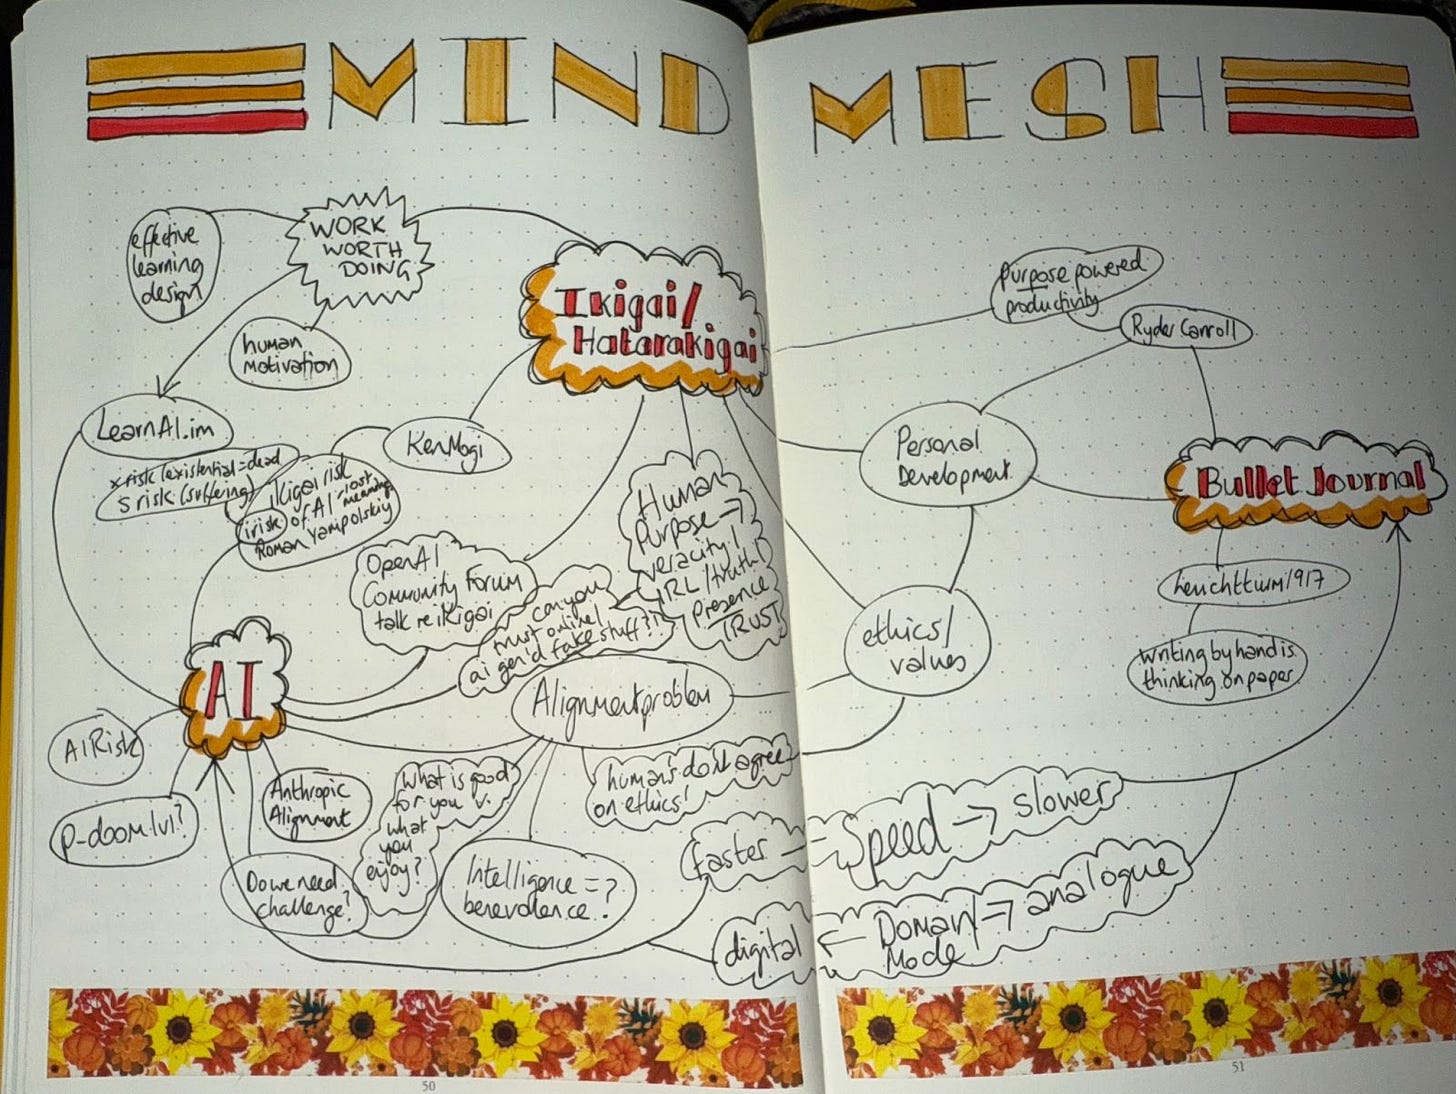 MIND MESH
effective
learning
design
WORK
WORTH
DOING
human
motivation
Ikigai/
Hatarakigai
purpose powered
productivity
Ryder Carroll
LearnAI.im
Ken Mogi
Personal
Development
Bullet Journal
x risk (existential = dead
s risk (suffering)
ikigai risk
irisk of AI - lost
meaning
Roman Yampolskiy
Human
Purpose →
veracity/
IRL/truth/
Presence
TRUST
OpenAI
Community Forum
talk re iKigai
can you
trust online/
ai gen'd fake stuff?
leuchtturm1917
writing by hand is
thinking on paper
ethics/
values
AI
Alignment problem
AI Risk
p-doom lvl?
Anthropic
Alignment
what is good
for you v.
what
you
enjoy?
humans don't agree
on ethics!
Do we need
challenge?
Intelligence = ?
benevolence?
faster ← Speed → slower
digital ← Domain/ → analogue
Mode
50
51